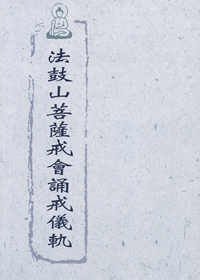 法鼓山菩薩戒會誦戒儀軌